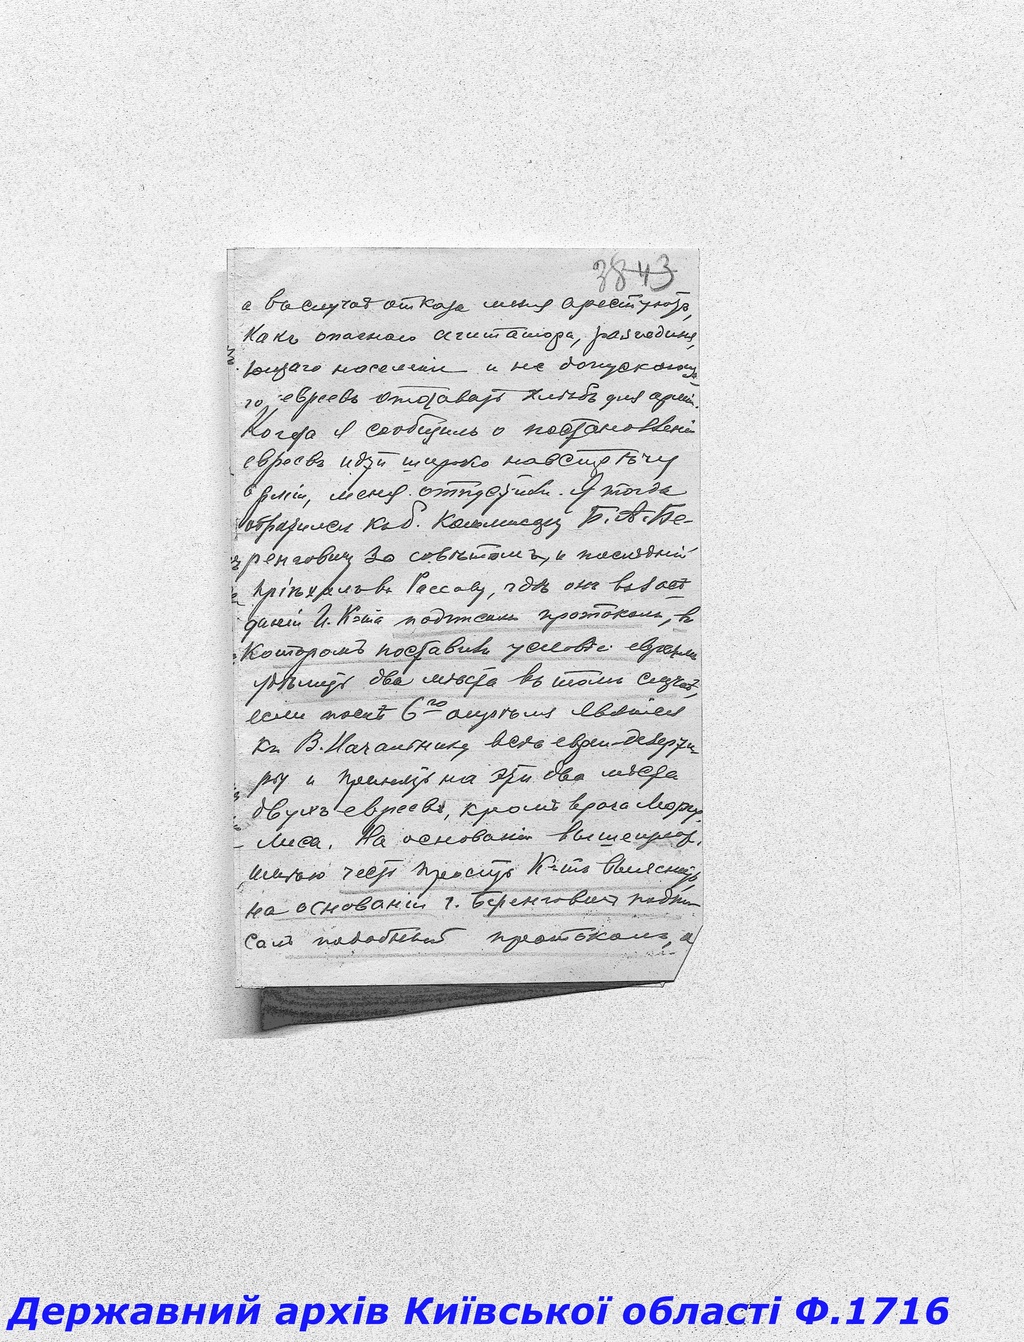 38 43
а въ случаѣ отказа меня арестуютъ,
какъ опаснаго агитатора,
ющаго населеніе и не допускающа
го евреевъ отдавать хлѣбъ для арміи.
Когда я сообщилъ о постановленіи
евреевъ идти широко навстрѣчу
арміи, меня отпустили. Я тогда
обратился къ б. Комиссару Б. А. Бе-
ренговичу за совѣтомъ, и послѣдній
пріѣхалъ въ Рассаву, гдѣ онъ въ засѣ
даніи И. К-та подписалъ протоколъ, въ
которомъ поставили условіе евреямъ
удѣлить два мѣста въ томъ случаѣ,
если послѣ 6го апрѣля явятся
къ В. Начальнику всѣ евреи-дезерти
ры и принять на эти два мѣста
двухъ евреевъ, кромѣ врача Маргу
лиса. На основаніи вышеизлож.
имѣю честь просить К-тъ выяснить,
на основаніи г. Беренговичъ подпи
салъ подобный протоколъ, а
Державний архів Київської області Ф.1716